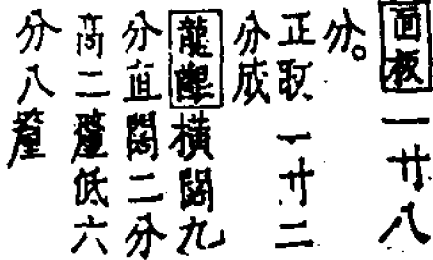 面板一廿八
分。
正取一廿二
分成
龍 横闊九
分直闊二分
高二釐低六
分八釐